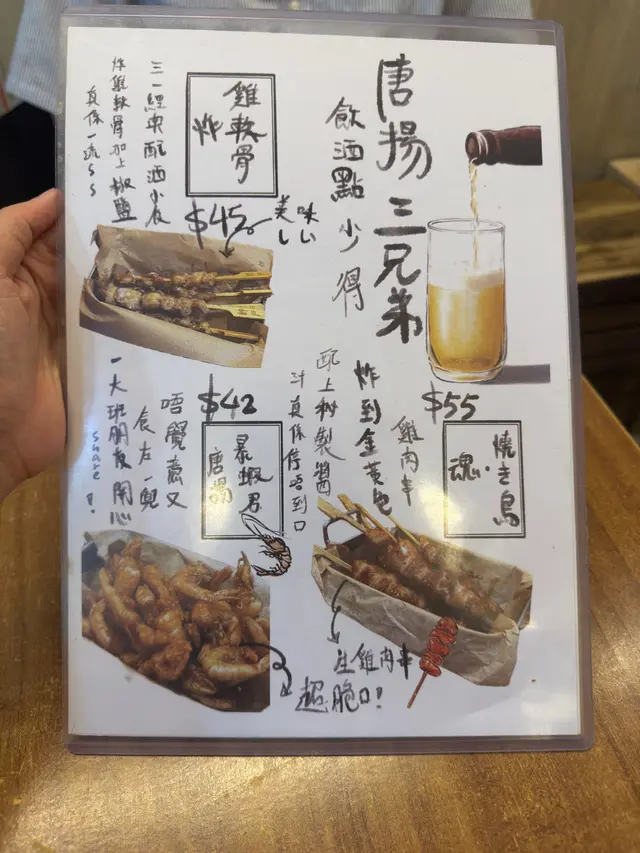 唐揚三兄弟
飲酒點少得
炸雞軟骨
$45
美味しい
三一經典配酒小食
炸雞軟骨加上椒鹽
真係一流ss
$55
燒き鳥魂
雞肉串
炸到金黃色
配上秘製醬
汁真係停唔到口
呢雞肉串
$42
暴蝦君唐揚
唔覺意又
食左一兜
一大班朋友開心
share!
超脆口!